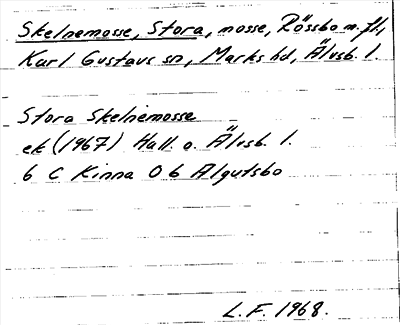 Skelnemosse, Stora, mosse, Rössbo m. fl.,
Karl Gustavs sn, Marks hd, Älvsb. l.
Stora Skelnemosse
ek (1967) Hall. o. Älvsb. l.
6 C Kinna 0 b Algutsbo
L. F. 1968.